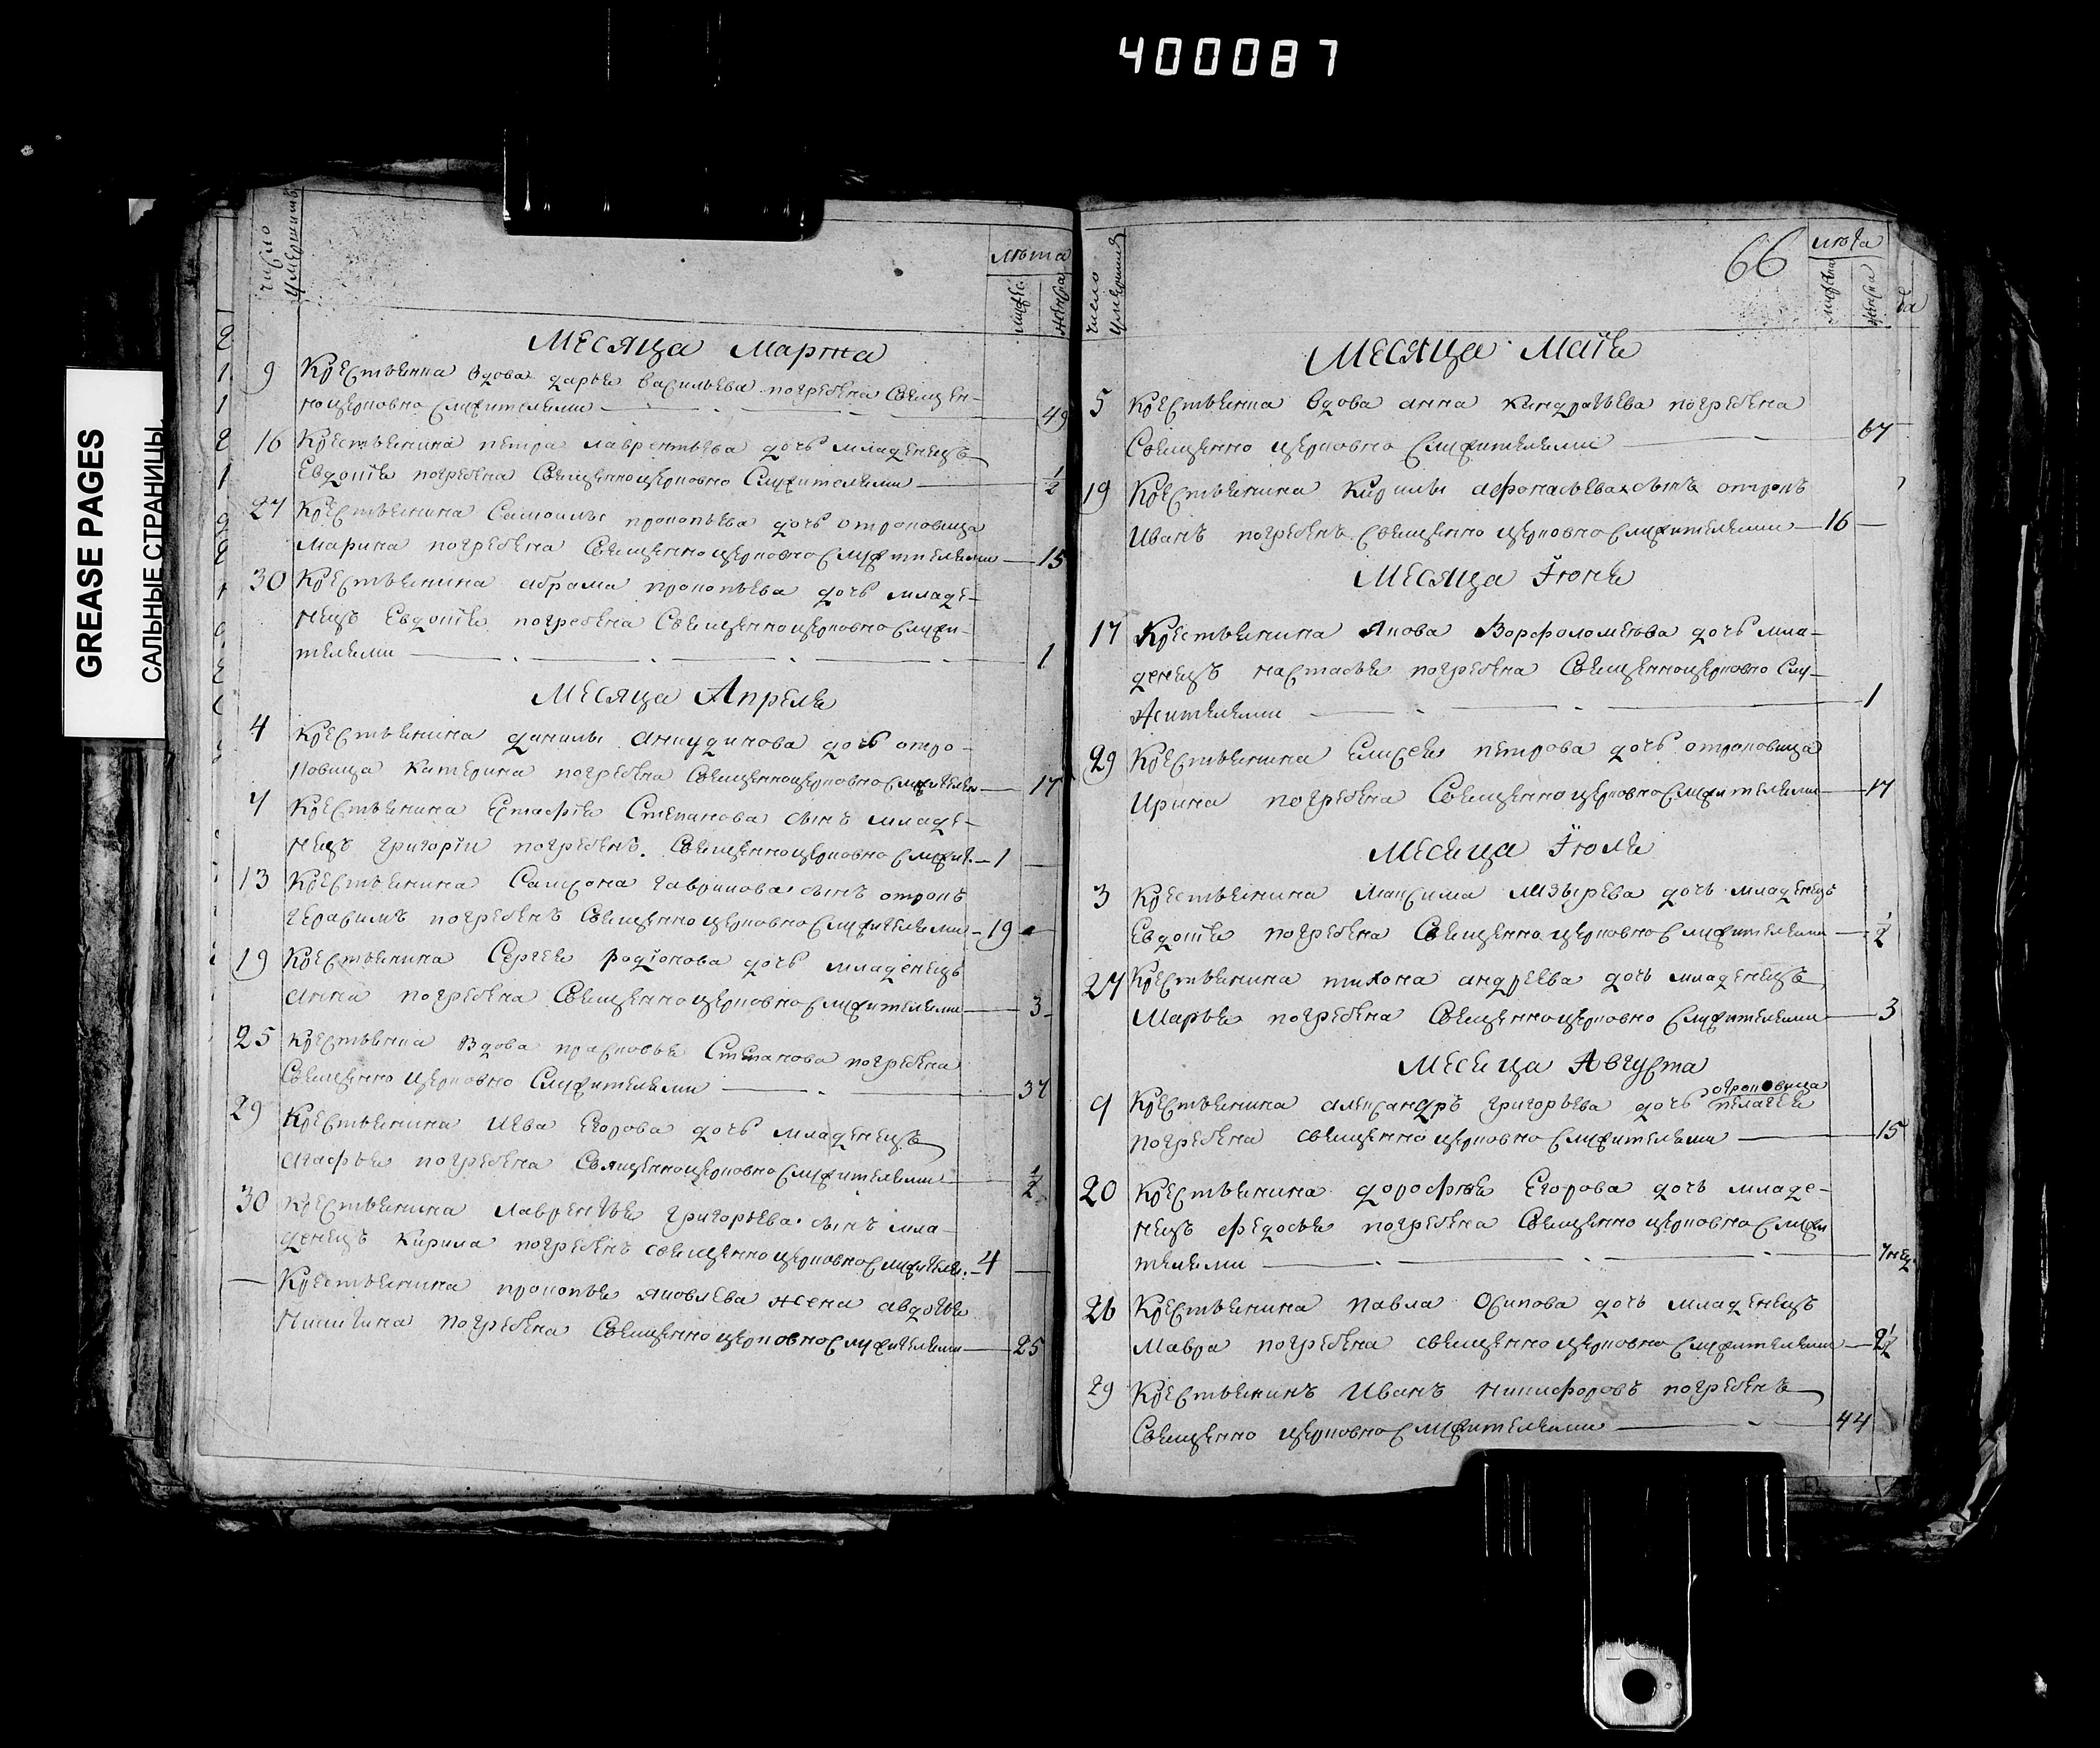 400087
GREASE PAGES
САЛЬНЫЕ СТРАНИЦЫ
число умерших
лѣта
мужес.
женска
Месяца Марта
9 Крестьянка вдова дарья васильева погребена Священ-
ноцерковно Служителями — 49
16 Крестьянина петра лаврентьева дочь младенецъ
Евдокія погребена Священноцерковно Служителями — 1/2
27 Крестьянина Самоилы прокопьева дочь отроковица
Марина погребена Священноцерковно Служителями — 15
30 Крестьянина абрама прокопьева дочь младе-
нецъ Евдокія погребена Священноцерковно Служи-
телями — 1
Месяца Апреля
4 Крестьянина данилы аникудинова дочь отро-
ковица катерина погребена Священноцерковно Служителями — 17
7 Крестьянина Естафія Степанова сынъ младе-
нецъ григорій погребенъ. Священноцерковно Служит. — 1 —
13 Крестьянина Самсона гаврилова сынъ отрокъ
герасимъ погребенъ Священноцерковно Служителями — 19 —
19 Крестьянина Сергея родіонова дочь младенецъ
анна погребена Священноцерковно Служителями — 3
25 Крестьянка вдова прасковья Степанова погребена
Священно церковно Служителями — 37
29 Крестьянина Иева Егорова дочь младенецъ
агафья погребена Священноцерковно Служителями — 1/2
30 Крестьянина лаврентья григорьева сынъ мла-
денецъ кирила погребенъ священноцерковно Служителя. — 4 —
— Крестьянина прокопья яковлева жена авдотья
Никитина погребена Священноцерковно Служителями — 25
66
число умерших
лѣта
мужеска
женска
да
Месяца Маія
5 Крестьянка вдова анна кандратьева погребена
Священно церковно Служителями — 67
19 Крестьянина кирилы афонасьева сынъ отрокъ
Иванъ погребенъ Священно церковно Служителями — 16 —
Месяца Іюня
17 Крестьянина якова Ворфоломеева дочь мла-
денецъ настасья погребена Священноцерковно Слу-
жителями — 1
29 Крестьянина Елисея петрова дочь отроковица
Ирина погребена Священноцерковно Служителями — 17
Месяца Іюля
3 Крестьянина Максима мзырева дочь младенецъ
Евдокія погребена Священно церковно Служителями — 1/2
27 Крестьянина тихона андреева дочь младенецъ
Марья погребена Священноцерковно Служителями — 3
Месяца Августа
отроковица
9 Крестьянина александръ григорьева дочь пелагея
погребена священно церковно Служителями — 15
20 Крестьянина дорофья Егорова дочь младе-
нецъ федосья погребена Священно церковно Служи
телями — 7 нед.
26 Крестьянина павла Осипова дочь младенецъ
Мавра погребена священно церковно Служителями — 2 1/2
29 Крестьянинъ Иванъ Никифоровъ погребенъ
Священно церковно Служителями — 44